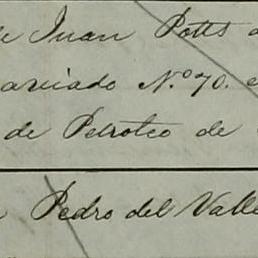 de Juan Potts
aviado No. 70.
de Petroteo de
Pedro del Valle